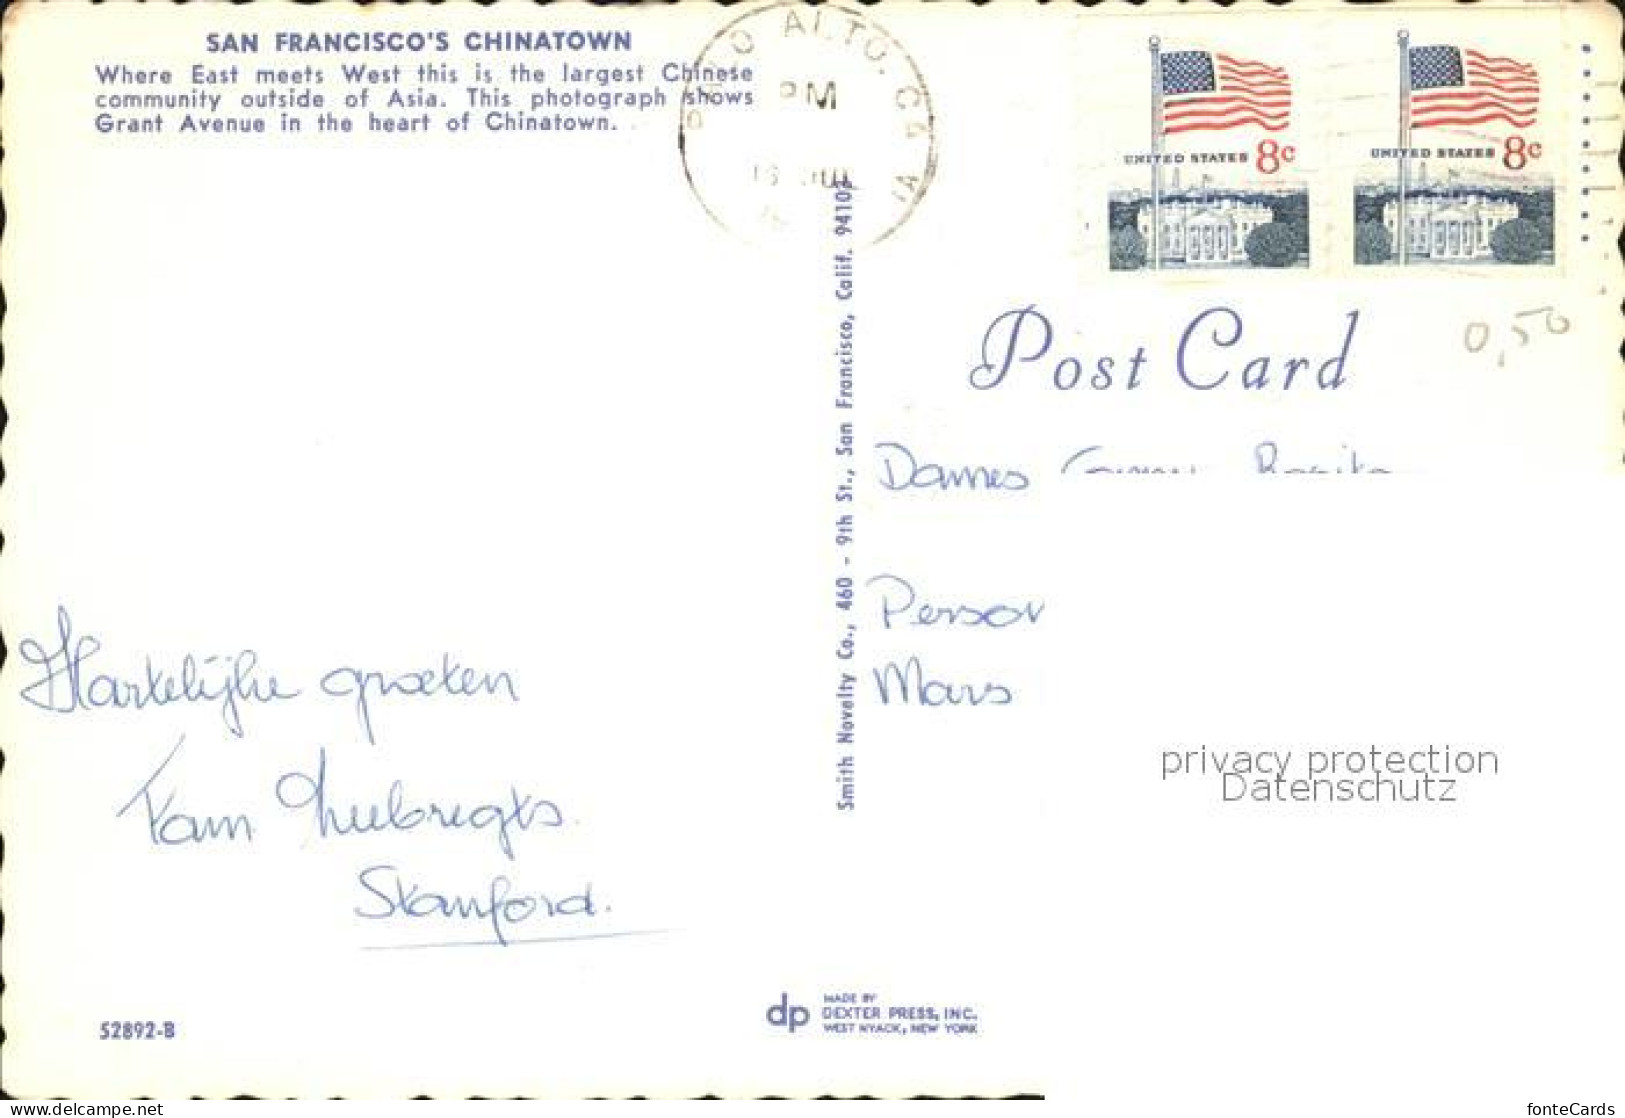 SAN FRANCISCO'S CHINATOWN
Where East meets West this is the largest Chinese
community outside of Asia. This photograph shows
Grant Avenue in the heart of Chinatown.
ALTO, CA
PM
UNITED STATES 8c
UNITED STATES 8c
Post Card
0,50
Smith Novelty Co., 460 - 9th St., San Francisco, Calif. 94103
Dames
Mars
Hartelijke groeten
Fam Huibregts.
Stanford.
privacy protection
Datenschutz
52892-B
dp
MADE BY
DEXTER PRESS, INC.
WEST NYACK, NEW YORK
https://www.ansichtskarten-center.de
fonteCards